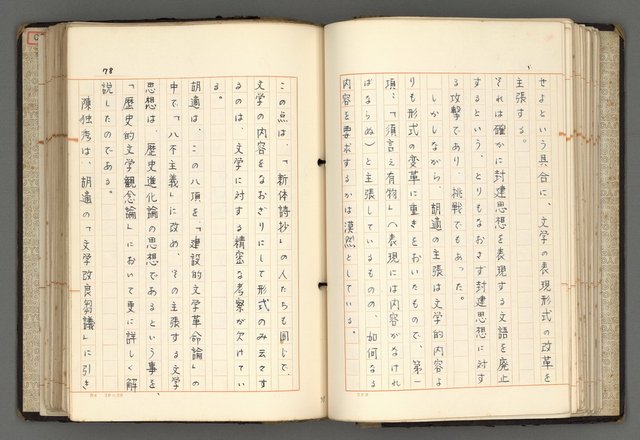 せよという具合に、文学の表現形式の改革を
主張する。
それは確かに封建思想を表現する文語を廃止
するという、とりもなおさず封建思想に対す
る攻撃であり、挑戦でもあった。
しかしながら、胡適の主張は文学的内容よ
りも形式の変革に重きをおいたもので、第一
項：「須言之有物」（表現には内容がなけれ
ばならぬ）と主張しているものの、如何なる
内容を要求するかは漠然としている。
78
この点は、「新体詩抄」の人たちも同じで、
文学の内容をなおざりにして形式のみ云々す
るのは、文学に対する精密な考察が欠けてい
る。
胡適は、この八項を「建設的文学革命論」の
中で「八不主義」に改め、その主張する文学
思想は、歴史進化論の思想であるという事を、
「歴史的文学観念論」において更に詳しく解
説したのである。
陳独秀は、胡適の「文学改良芻議」に引き